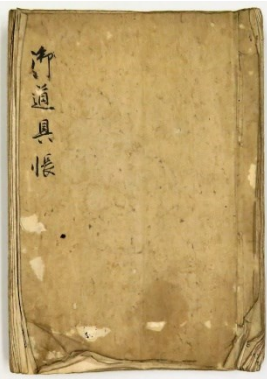 御道具帳